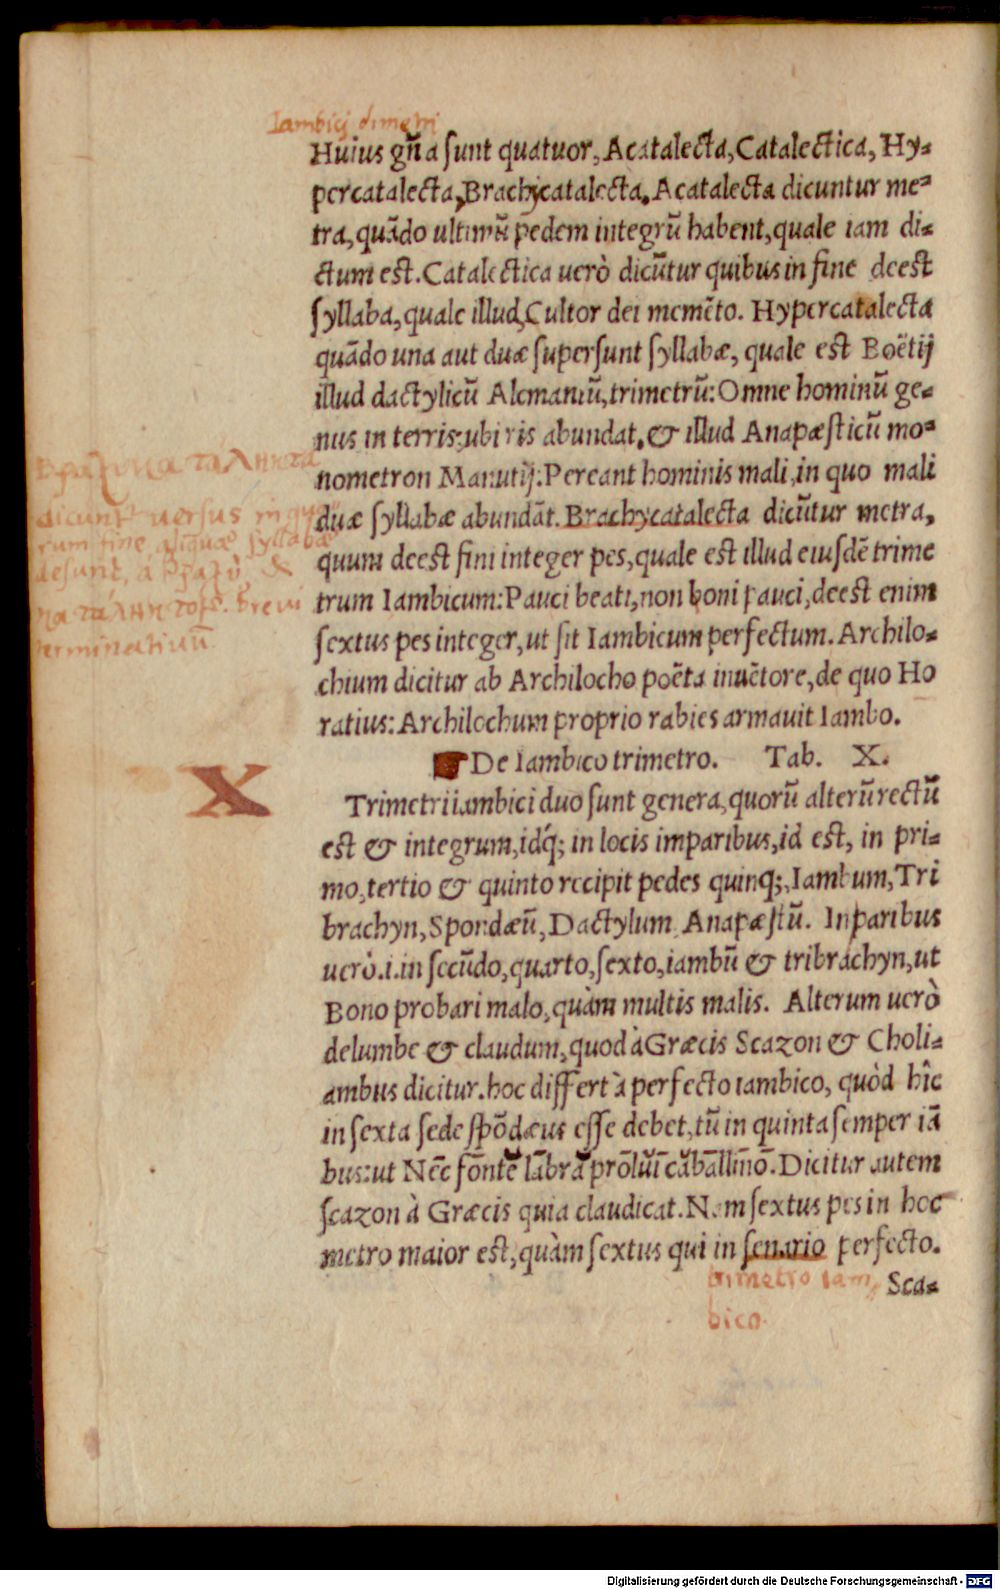 Iambicj dimetri
Huius gñ̃a sunt quatuor, Acatalecta, Catalectica, Hy-
percatalecta, Brachycatalecta. Acatalecta dicuntur me-
tra, quãdo ultimũ pedem integrũ habent, quale iam di-
ctum est. Catalectica uerò dicũtur quibus in fine deest
syllaba, quale illud, Cultor dei memẽto. Hypercatalecta
quãdo una aut duæ supersunt syllabæ, quale est Boëtij
illud dactylicũ Alcmaniũ, trimetrũ: Omne hominũ ge-
nus in terris: ubi ris abundat. & illud Anapæsticũ mo-
nometron Manutij: Pereant hominis mali, in quo mali
duæ syllabæ abundãt. Brachycatalecta dicũtur metra,
quum deest fini integer pes, quale est illud eiusdẽ trime
trum Iambicum: Pauci beati, non boni pauci, deest enim
sextus pes integer, ut sit Iambicum perfectum. Archilo-
chium dicitur ab Archilocho poëta inuẽtore, de quo Ho
ratius: Archilochum proprio rabies armauit Iambo.
dicunt uersus in quo
rum fine aliquae syllabae
desunt, a βραχὺ, &
καταληκτος. breui
terminatiuũ
☛ De Iambico trimetro. Tab. X.
X
Trimetri iambici duo sunt genera, quorũ alterũ rectũ
est & integrum, idq́; in locis imparibus, id est, in pri-
mo, tertio & quinto recipit pedes quinq;, Iambum, Tri
brachyn, Spondæũ, Dactylum Anapæstũ. In paribus
uerò .i. in secũdo, quarto, sexto, iambũ & tribrachyn, ut
Bono probari malo, quàm multis malis. Alterum uerò
delumbe & claudum, quod à Græcis Scazon & Choli-
ambus dicitur. hoc differt à perfecto iambico, quòd hîc
in sexta sede spõdæus esse debet, tũ in quinta semper iã
bus: ut Nēc fōntĕ lābră prōlŭī căbāllīnō. Dicitur autem
scazon à Græcis quia claudicat. Nam sextus pes in hoc
metro maior est, quàm sextus qui in senario perfecto.
trimetro iam
bico.
Sca-
Digitalisierung gefördert durch die Deutsche Forschungsgemeinschaft - DFG